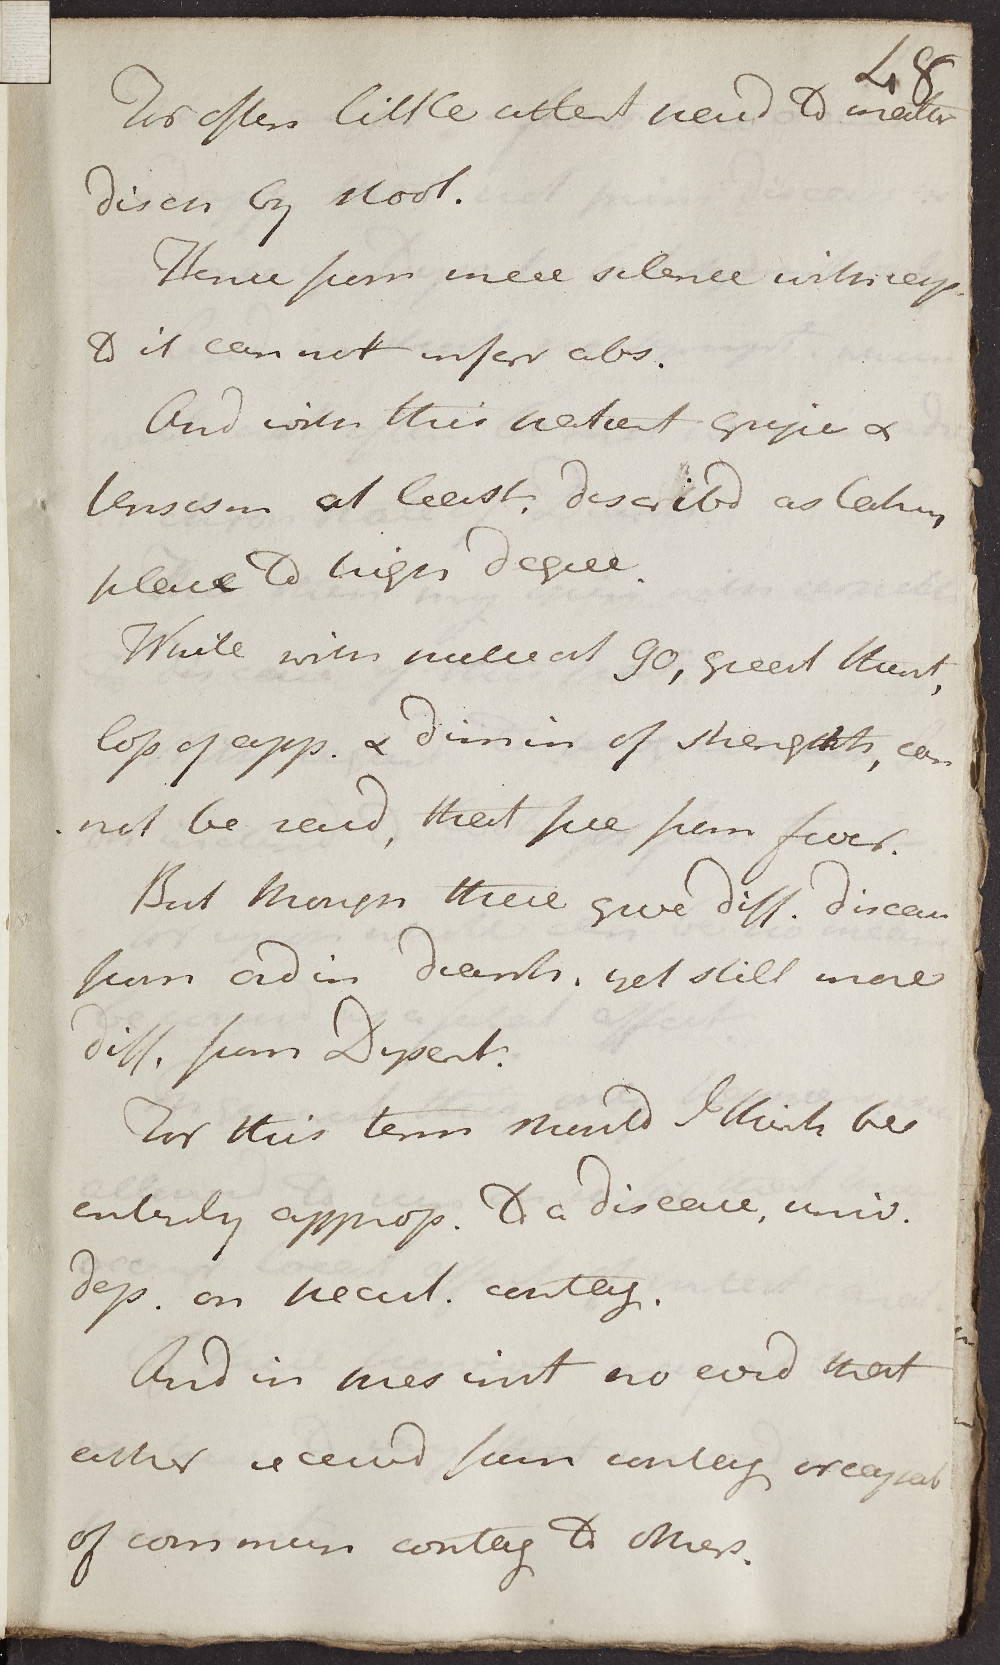 48
For often little attent paid to matter
disch by stool.
Hence from mere silence with resp.
to it cannot infer abs.
And with this patient gripe &
tenesm at least, describd as taking
place to high degree.
While with pulse at 90, great thirst,
loss of app. & dimin of strength, can
not be said, that free from fever.
But though these give diff. disease
from ordin diarrh. yet still more
diff. from Dysent.
For this term should I think be
entirely approp. to a disease, univ.
dep. on pecul. contag.
And in pres inst no evid that
either receivd from contag or capab
of commun contag to others.